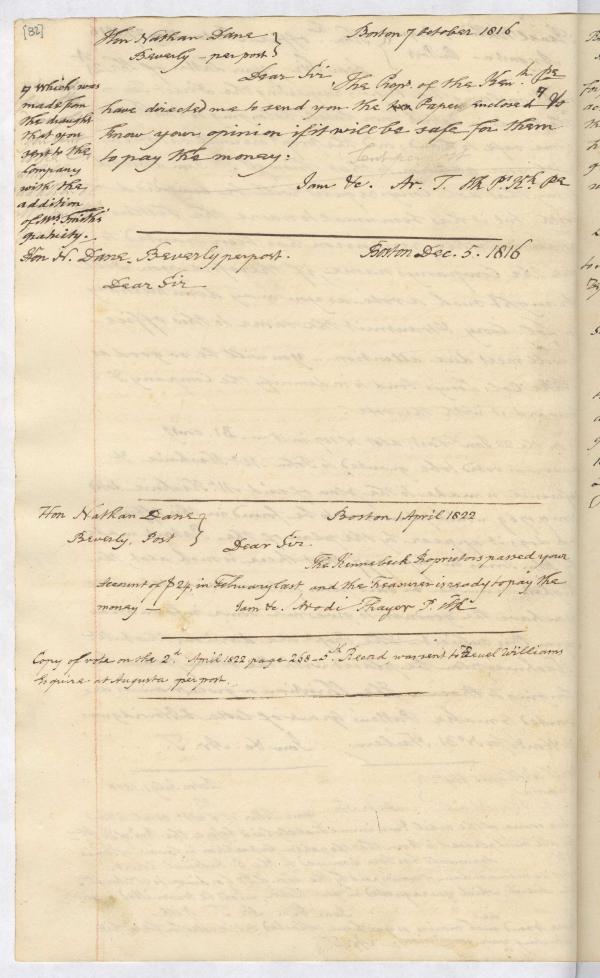 [32]
Hon Nathan Dane } Boston 7 October 1816
Beverly - per post }
Dear Sir The Props. of the Ken.k Pe
have directed me to send you the Paper enclosed &
know your opinion if it will be safe for them
to pay the money:
I am &c. Ar. T.
which was
made from
the draught
that you
sent to the
Company
with the
addition
of Mr Smith's
gratuity.
Hon N. Dane, Beverly per post. Boston Dec. 5. 1816
Dear Sir
Hon Nathan Dane } Boston 1 April 1822
Beverly, Post }
Dear Sir
The Kennebeck Proprietors passed your
Account of $24, in February last, and the Treasurer is ready to pay the
money — I am &c. Arodi Thayer P. Clk
Copy of vote on the 2d. April 1822 page 268 - 5th. Record was sent to Reuel Williams
Esquire at Augusta per post.